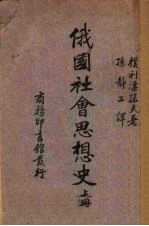 樸列漢諾夫著
孫靜工譯
俄國社會思想史
上海
商務印書館發行